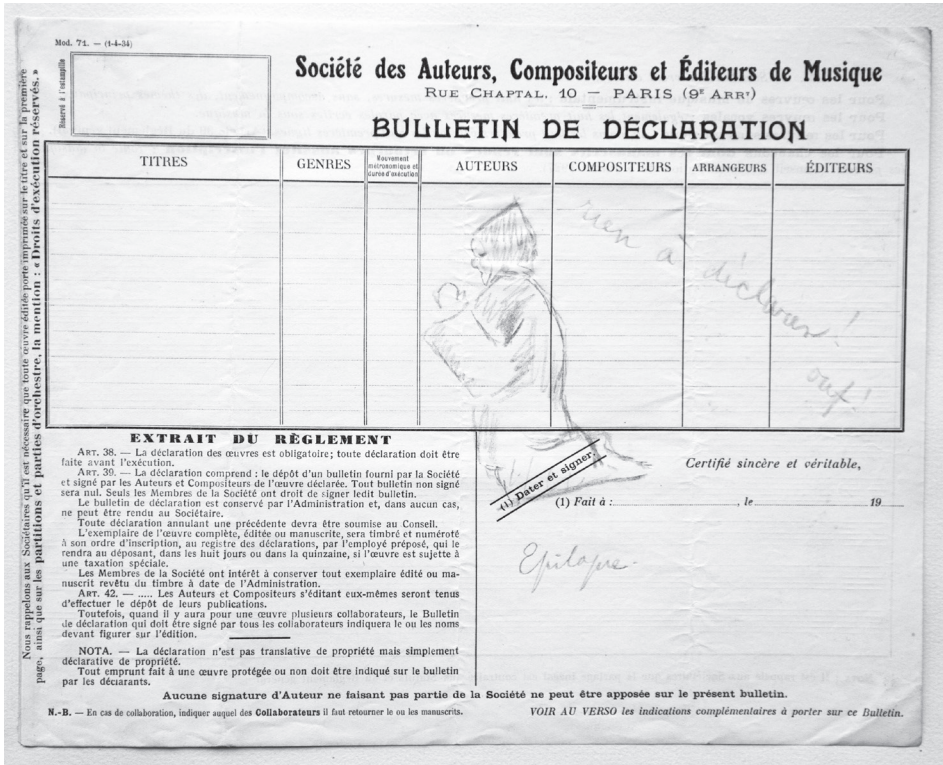 Mod. 71. — (1-4-34)
Réservé à l'estampille
Société des Auteurs, Compositeurs et Éditeurs de Musique
RUE CHAPTAL, 10 — PARIS (9E ARRT)
BULLETIN DE DÉCLARATION
TITRES
GENRES
Mouvement
métronomique et
durée d'exécution
AUTEURS
COMPOSITEURS
ARRANGEURS
ÉDITEURS
rien à déclarer!
ouf!
Nous rappelons aux Sociétaires qu'il est nécessaire que toute œuvre éditée porte imprimée sur le titre et sur la première
page, ainsi que sur les partitions et parties d'orchestre, la mention : « Droits d'exécution réservés. »
EXTRAIT DU RÈGLEMENT
ART. 38. — La déclaration des œuvres est obligatoire; toute déclaration doit être
faite avant l'exécution.
ART. 39. — La déclaration comprend : le dépôt d'un bulletin fourni par la Société
et signé par les Auteurs et Compositeurs de l'œuvre déclarée. Tout bulletin non signé
sera nul. Seuls les Membres de la Société ont droit de signer ledit bulletin.
Le bulletin de déclaration est conservé par l'Administration et, dans aucun cas,
ne peut être rendu au Sociétaire.
Toute déclaration annulant une précédente devra être soumise au Conseil.
L'exemplaire de l'œuvre complète, éditée ou manuscrite, sera timbré et numéroté
à son ordre d'inscription, au registre des déclarations, par l'employé préposé, qui le
rendra au déposant, dans les huit jours ou dans la quinzaine, si l'œuvre est sujette à
une taxation spéciale.
Les Membres de la Société ont intérêt à conserver tout exemplaire édité ou ma-
nuscrit revêtu du timbre à date de l'Administration.
ART. 42. — ..... Les Auteurs et Compositeurs s'éditant eux-mêmes seront tenus
d'effectuer le dépôt de leurs publications.
Toutefois, quand il y aura pour une œuvre plusieurs collaborateurs, le Bulletin
de déclaration qui doit être signé par tous les collaborateurs indiquera le ou les noms
devant figurer sur l'édition.
NOTA. — La déclaration n'est pas translative de propriété mais simplement
déclarative de propriété.
Tout emprunt fait à une œuvre protégée ou non doit être indiqué sur le bulletin
par les déclarants.
(1) Dater et signer.
Certifié sincère et véritable,
(1) Fait à : , le 19
Epilogue.
Aucune signature d'Auteur ne faisant pas partie de la Société ne peut être apposée sur le présent bulletin.
N.-B. — En cas de collaboration, indiquer auquel des Collaborateurs il faut retourner le ou les manuscrits.
VOIR AU VERSO les indications complémentaires à porter sur ce Bulletin.